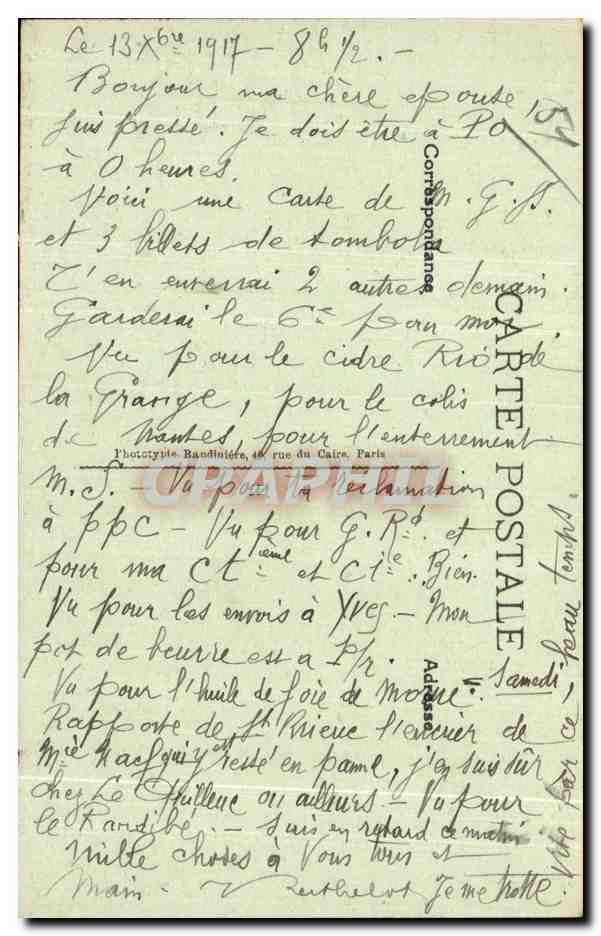 Le 13 Xbre 1917 - 8h 1/2. -
Bonjour ma chère épouse,
suis pressé. Je dois être à PO
à 0 heures.
Voici une carte de M. G.
et 3 billets de tombola
T'en enverrai 2 autres demain.
Garderai le 6e pour moi.
Vu pour le cidre Rio de
la Grange, pour le colis
de Nantes, pour l'enterrement
M. S. - Vu pour ta réclamation
à ppc - Vu pour G. Rd et
pour ma et Cie. Bien
Vu pour les envois à Yves - Mon
pot de beurre est à
Vu pour l'huile de foie de morue.
Rapporte de St Brieuc l'encrier de
Mie qui y est resté en panne, j'en suis sûr
chez Le ou ailleurs - Vu pour
le - Suis en retard ce matin
Mille choses à Vous tous et
Main - Je me trotte.
Samedi
Vite par ce beau temps.
54
Correspondance
CARTE POSTALE
Adresse
Phototypie Baudinière, rue du Caire, Paris
CPAPHIL